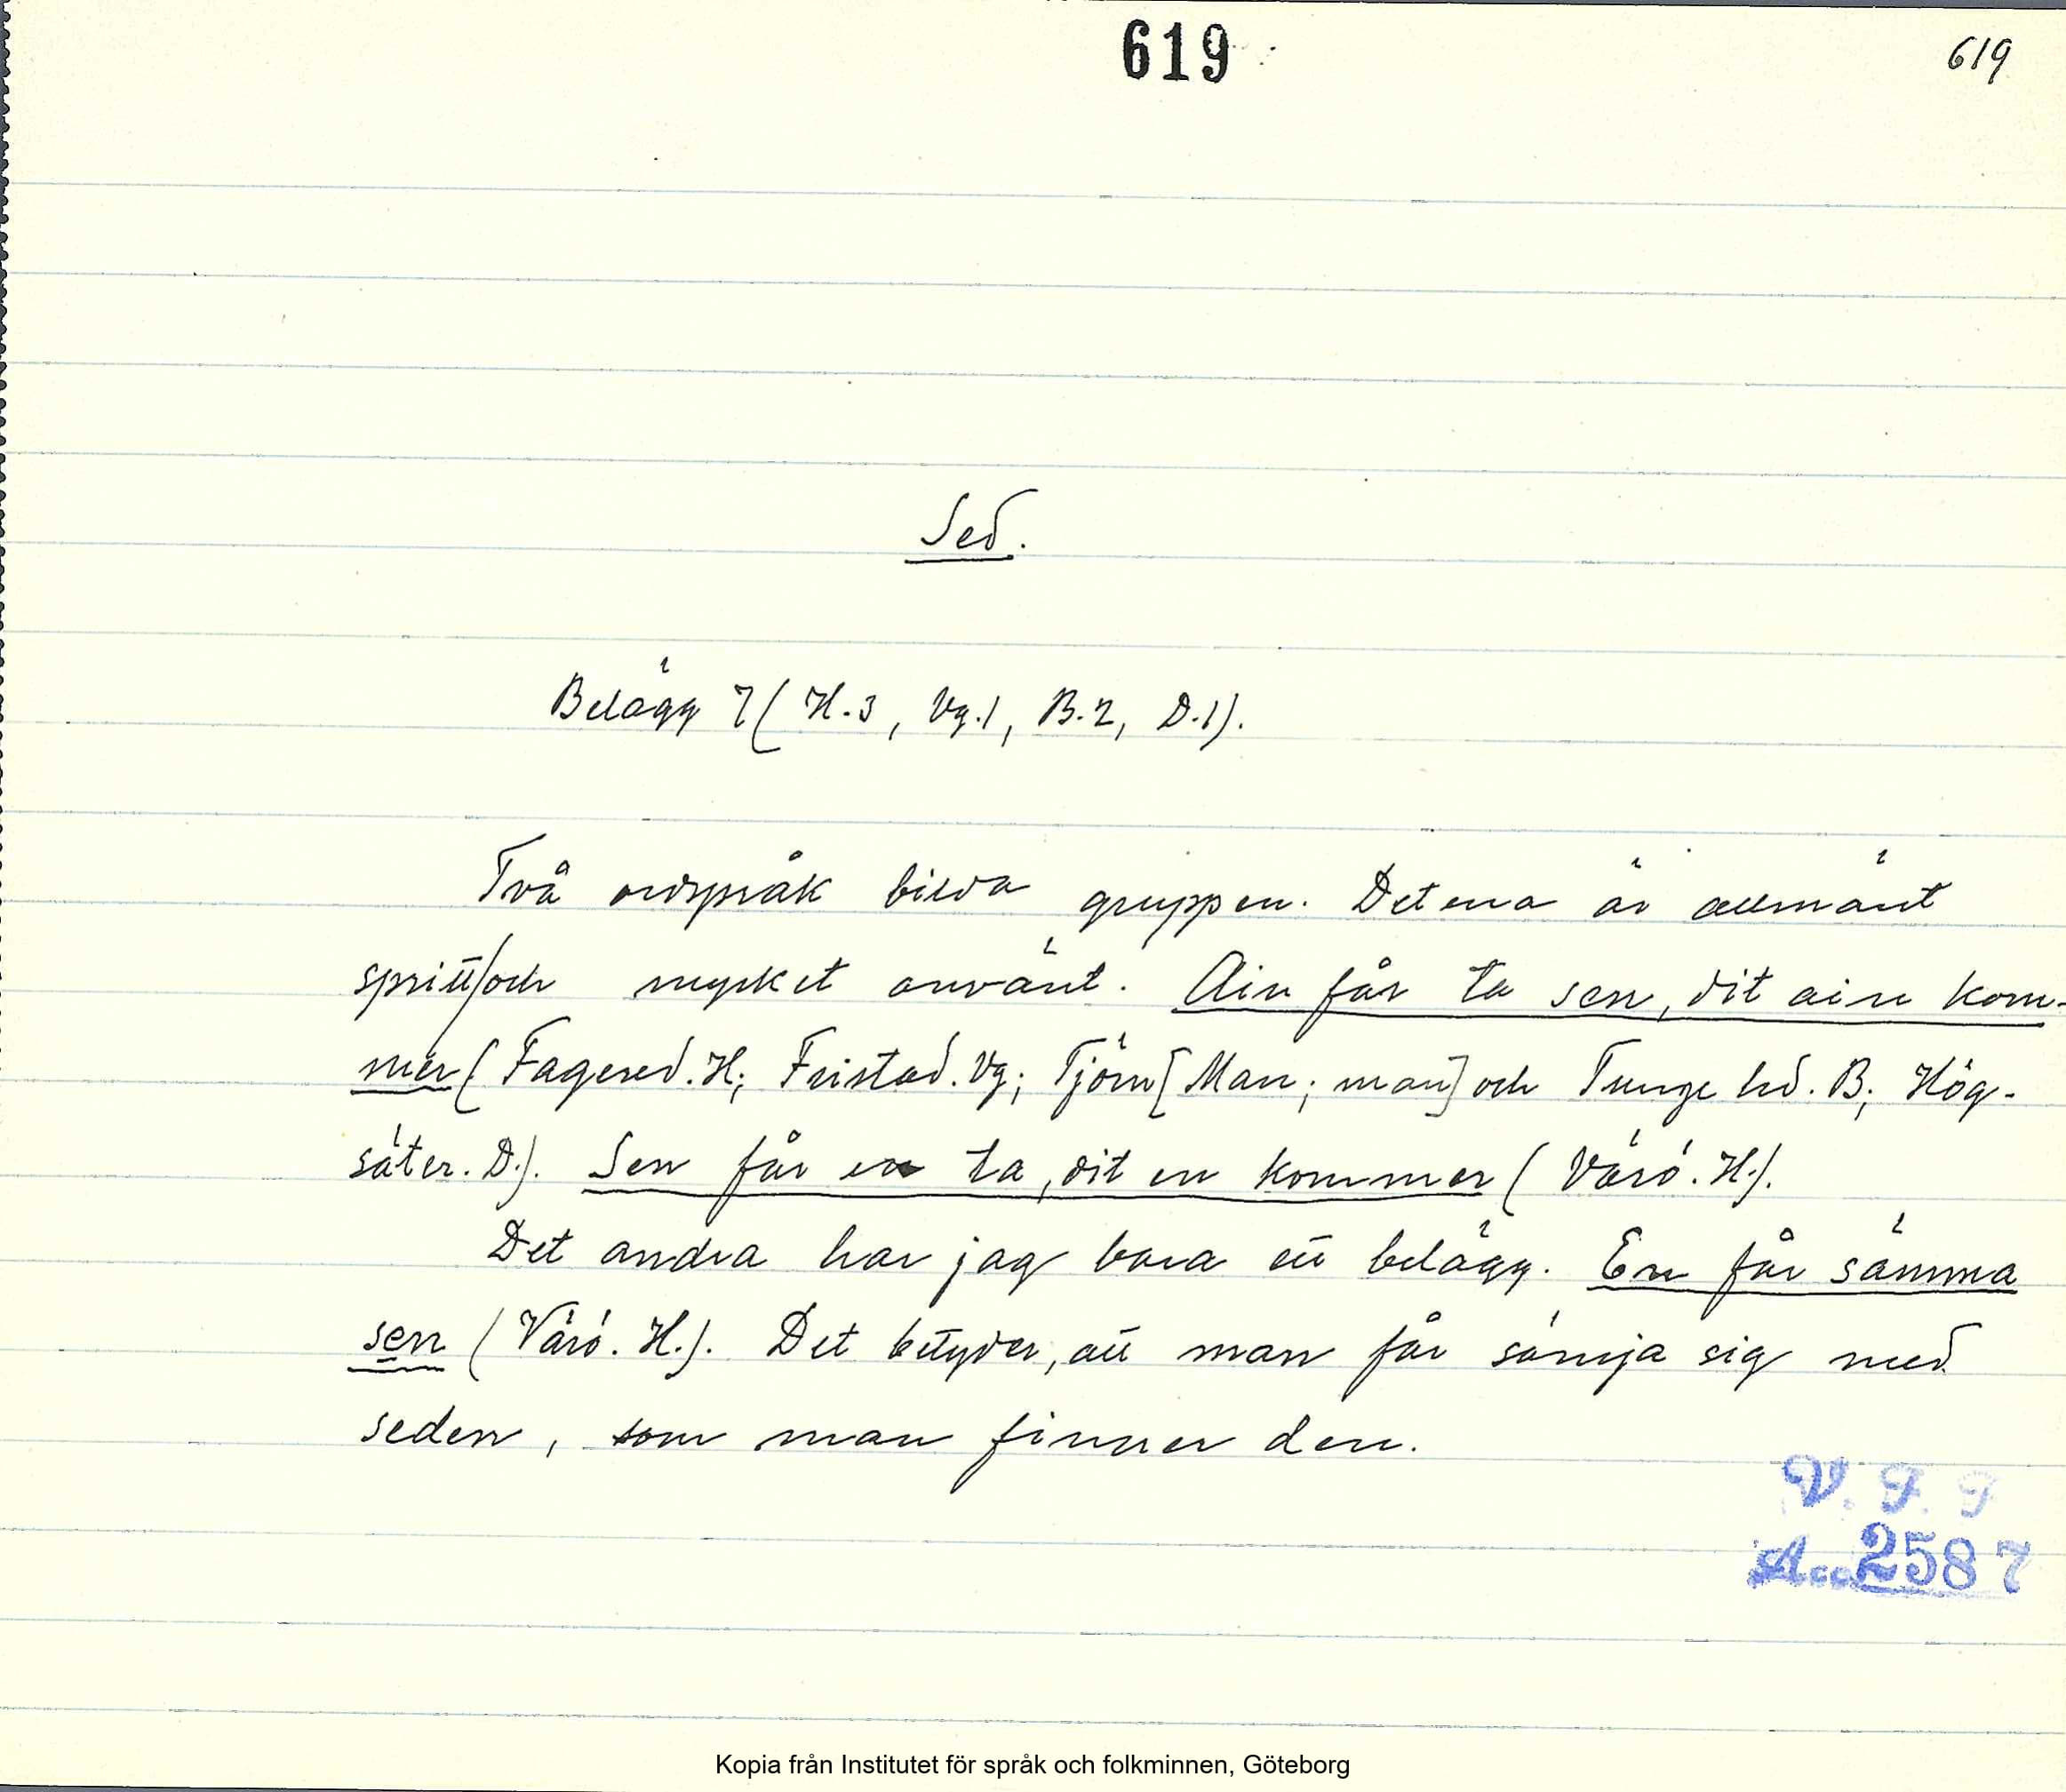 619
619
Sed.
Belägg 7 (H. 3, Vg. 1, B. 2, D. 1).
Två ordspråk bilda gruppen. Det ena är allmänt
spritt och mycket använt. Ain får ta sen, dit ain kom-
mer (Fagered. H; Fristad. Vg; Tjörn [Man; man] och Tunge hd. B; Hög-
säter. D.). Sen får en ta, dit en kommer (Värö. H.).
Det andra har jag bara ett belägg. En får sämma
sen (Värö. H.). Det betyder, att man får sämja sig med
seden, som man finner den.
V. F. F
Acc 2587
Kopia från Institutet för språk och folkminnen, Göteborg